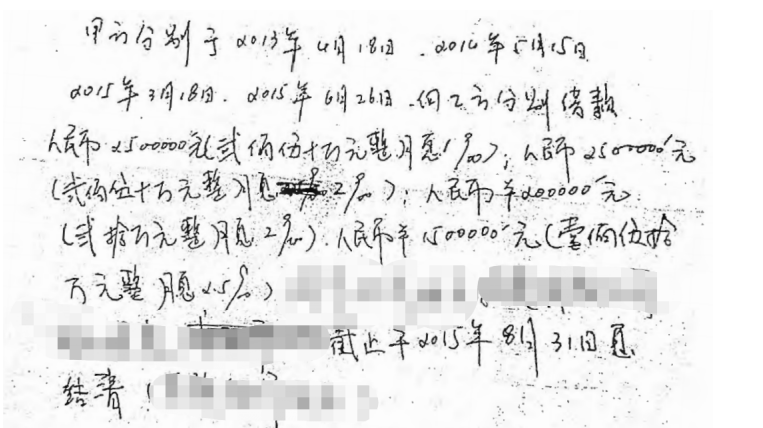 甲方分别于2013年4月18日、2014年5月15日
2015年3月18日、2015年6月26日、向乙方分别借款
人民币2500000元(贰佰伍十万元整月息1%);人民币2500000元
(贰佰伍十万元整月息2%);人民币¥200000元
(贰拾万元整月息2%).人民币¥1500000元(壹佰伍拾
万元整月息2.5%)
截止于2015年8月31日息
结清(